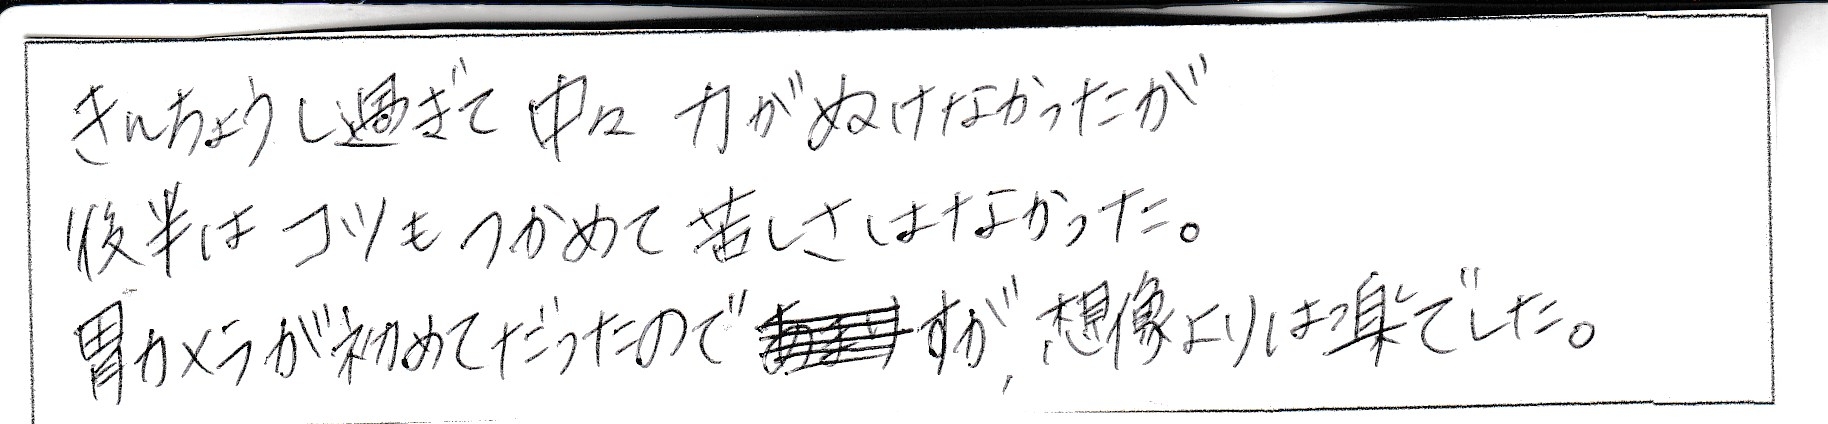 きんちょうし過ぎて中々 力がぬけなかったが
後半は コツもつかめて苦しさはなかった。
胃カメラが初めてだったのですが、想像よりは楽でした。